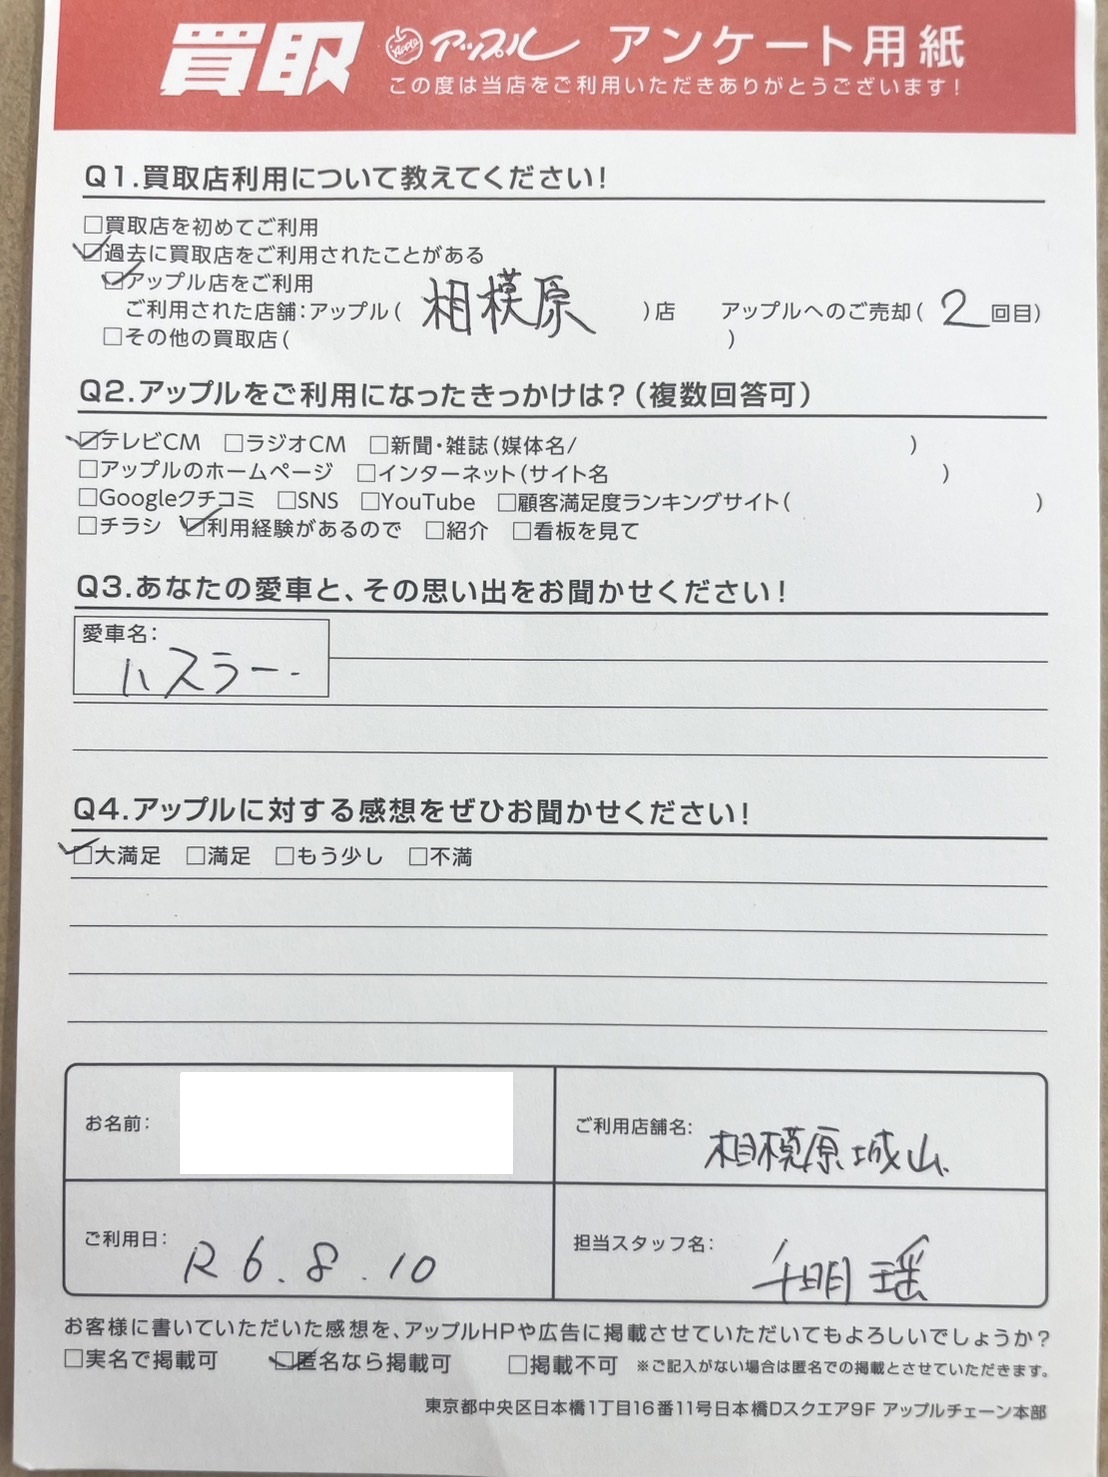 買取 Apple アップル アンケート用紙
この度は当店をご利用いただきありがとうございます！
Q1.買取店利用について教えてください！
□買取店を初めてご利用
☑過去に買取店をご利用されたことがある
☑アップル店をご利用
ご利用された店舗：アップル（ 相模原 ）店 アップルへのご売却（ 2 回目）
□その他の買取店（ ）
Q2.アップルをご利用になったきっかけは？（複数回答可）
☑テレビCM □ラジオCM □新聞・雑誌（媒体名/ ）
□アップルのホームページ □インターネット（サイト名 ）
□Googleクチコミ □SNS □YouTube □顧客満足度ランキングサイト（ ）
□チラシ ☑利用経験があるので □紹介 □看板を見て
Q3.あなたの愛車と、その思い出をお聞かせください！
愛車名：
ハスラー.
Q4.アップルに対する感想をぜひお聞かせください！
☑大満足 □満足 □もう少し □不満
お名前：
ご利用店舗名： 相模原城山.
ご利用日： R6.8.10
担当スタッフ名： 千明 瑶
お客様に書いていただいた感想を、アップルHPや広告に掲載させていただいてもよろしいでしょうか？
□実名で掲載可 ☑匿名なら掲載可 □掲載不可 ※ご記入がない場合は匿名での掲載とさせていただきます。
東京都中央区日本橋1丁目16番11号日本橋Dスクエア9F アップルチェーン本部